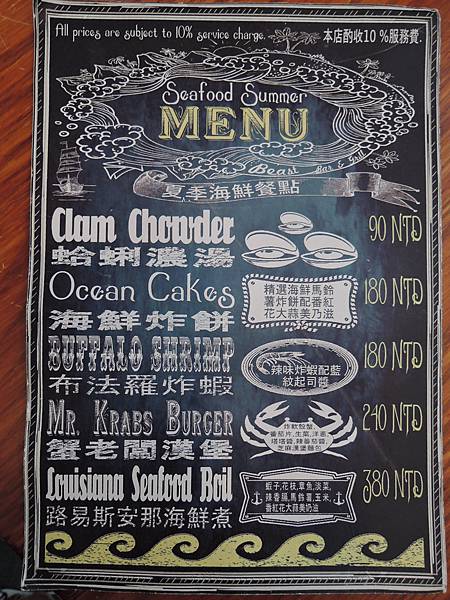 All prices are subject to 10% service charge.
本店酌收10 %服務費.
Seafood Summer
MENU
Beast Bar & Grill
夏季海鮮餐點
Clam Chowder
90 NTD
蛤蜊濃湯
Ocean Cakes
180 NTD
海鮮炸餅
精選海鮮馬鈴
薯炸餅配番紅
花大蒜美乃滋
BUFFALO SHRIMP
180 NTD
布法羅炸蝦
辣味炸蝦配藍
紋起司醬
Mr. Krabs Burger
240 NTD
蟹老闆漢堡
炸軟殼蟹,
番茄片,生菜,洋蔥,
塔塔醬,辣番茄醬,
芝麻漢堡麵包
Louisiana Seafood Boil
380 NTD
路易斯安那海鮮煮
蝦子,花枝,章魚,淡菜,
辣香腸,馬鈴薯,玉米,
番紅花大蒜美奶油